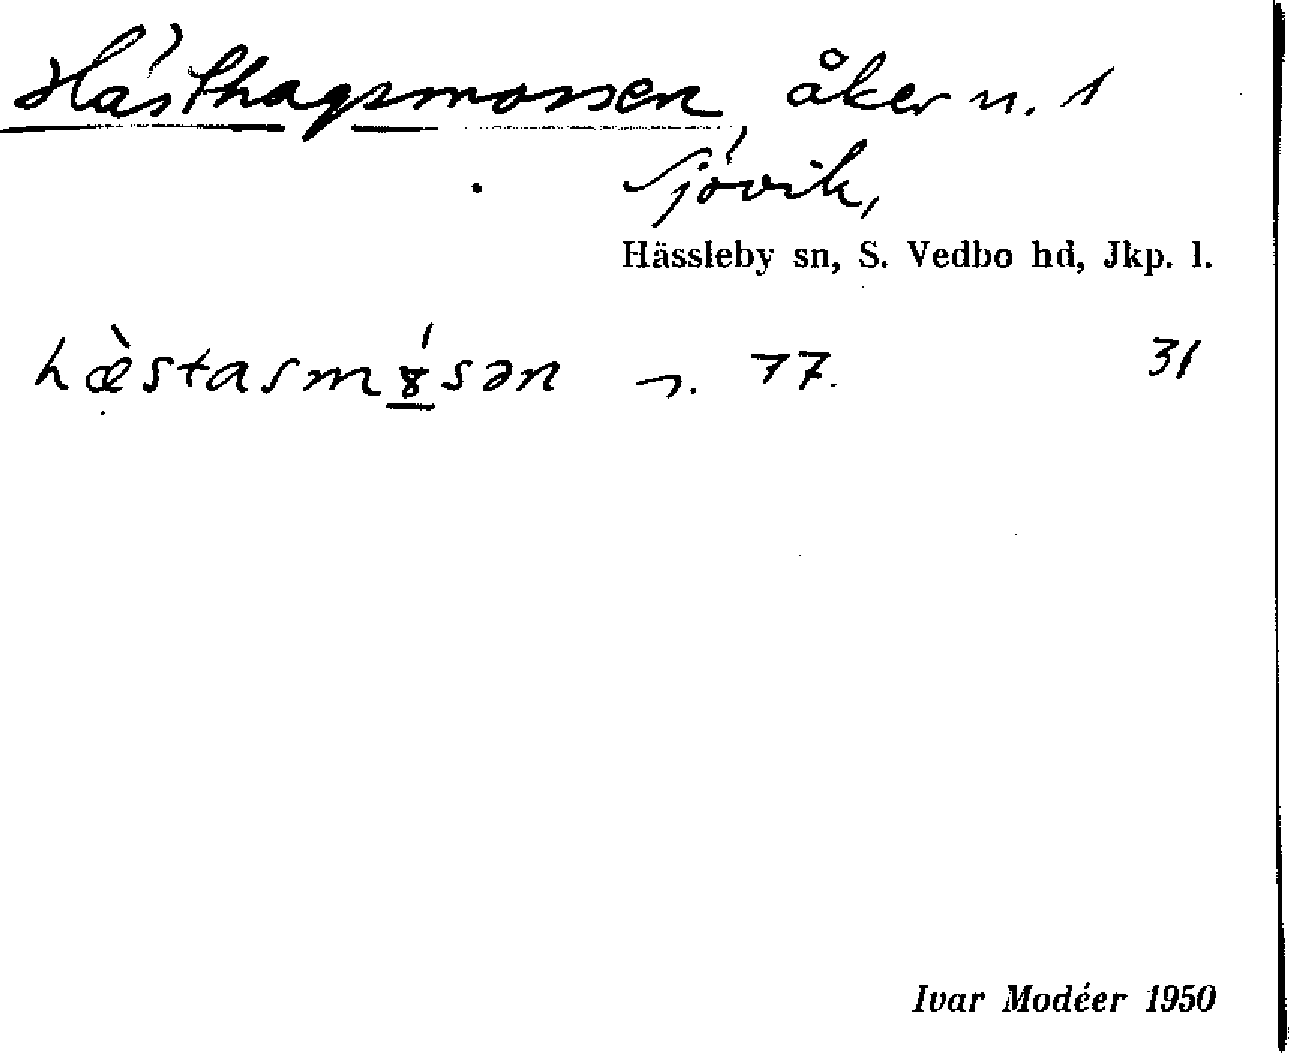 Hästhagsmossen åker n. 1
Sjövik,
Hässleby sn, S. Vedbo hd, Jkp. l.
hæ̀stasmɤ́sən n. 77. 31
Ivar Modéer 1950